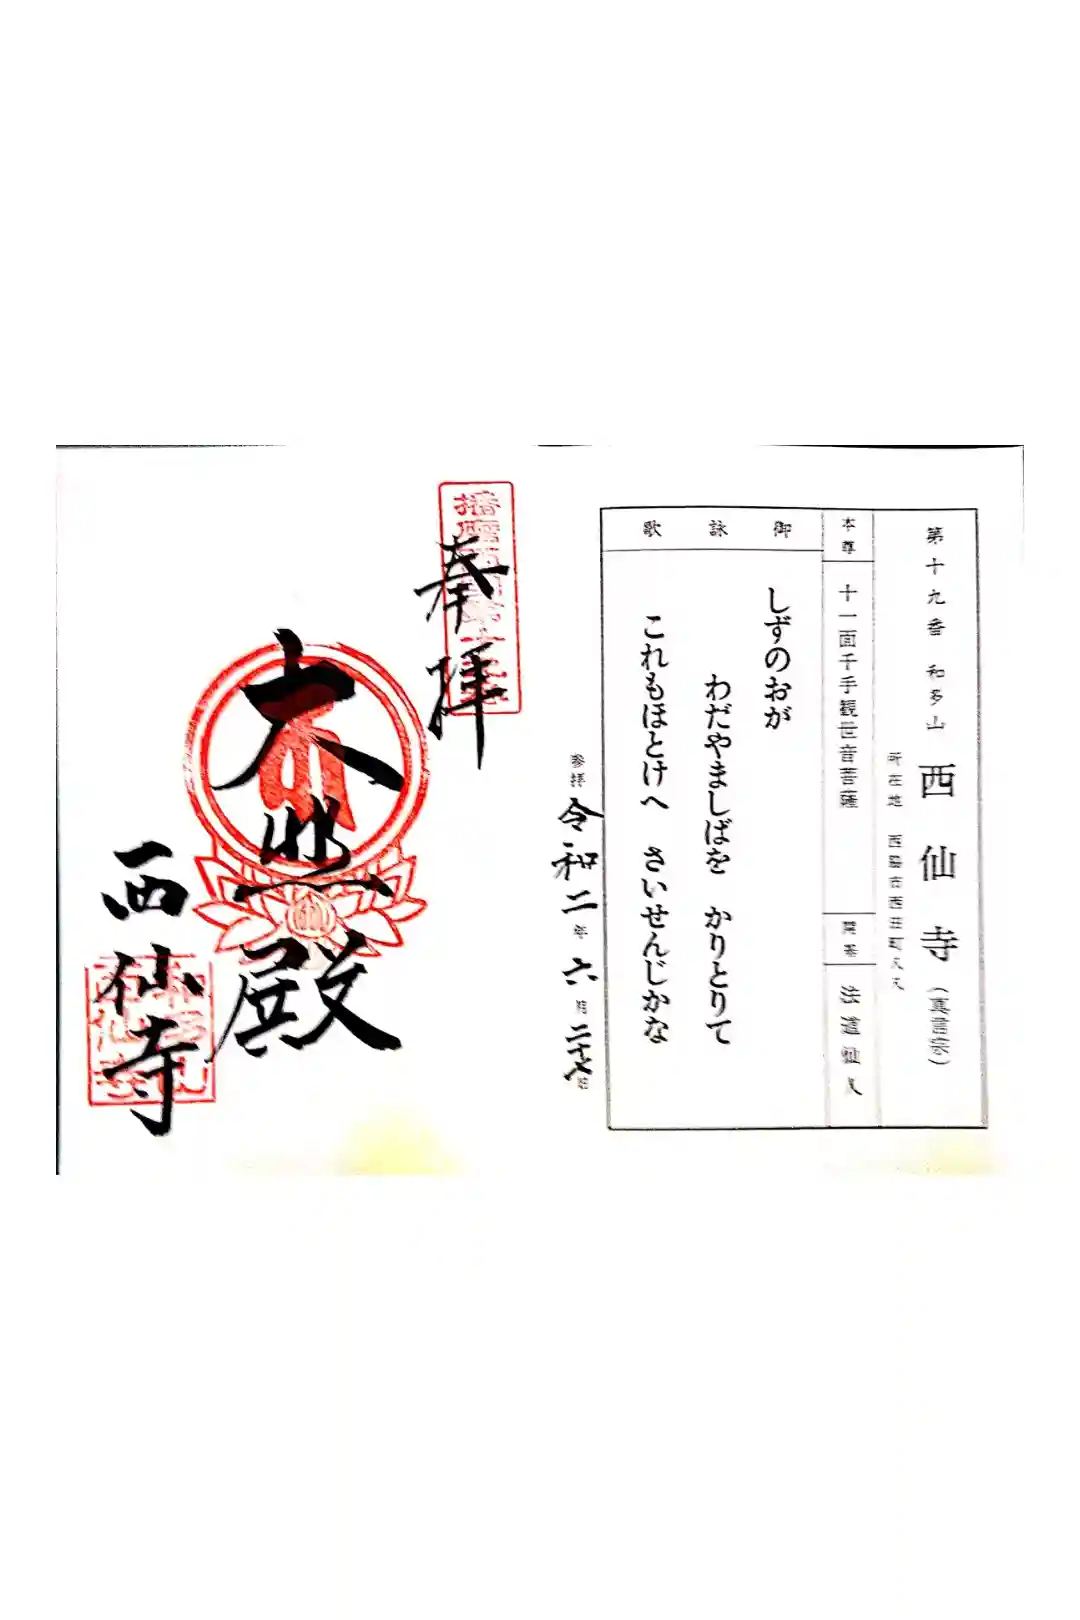 第十九番 和多山 西仙寺（真言宗）
所在地 西脇市西田町
本尊 十一面千手観世音菩薩
開基 法道仙人
御詠歌
しずのおが
わだやましばを かりとりて
これもほとけへ さいせんじかな
参拝 令和二年六月二十七日
奉拝
大悲殿
西仙寺